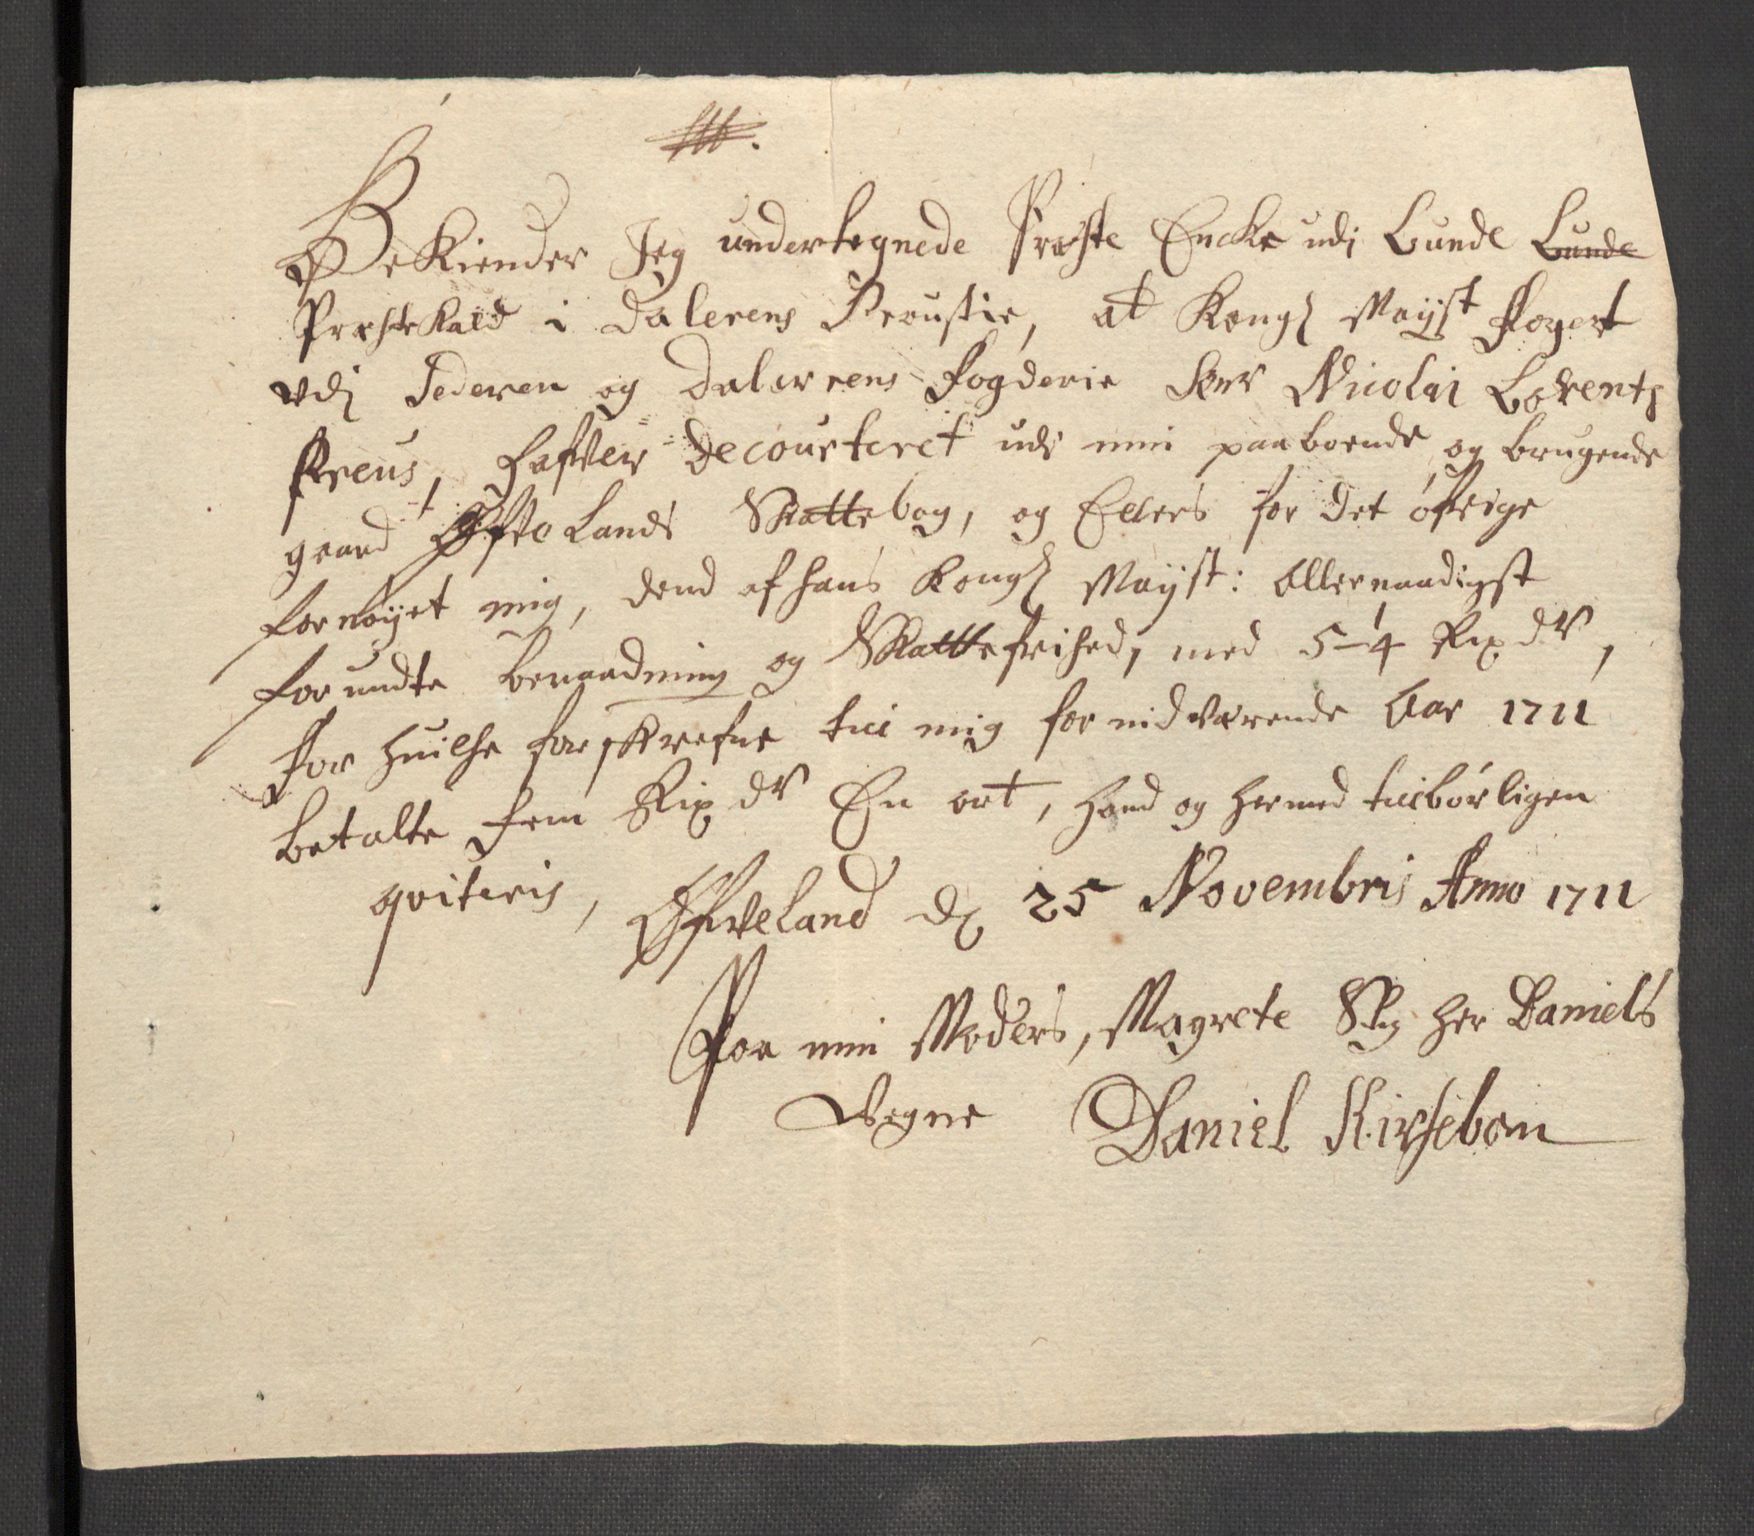 BeKiender Jeg undertegnede Præste Encke udj Lunde Lunde
Præstekald i Dalerens Proustie, at Kongl Mayst Foget
vdj Jederen og Dalerrens Fogderie Sr Nicolai Lorentz
Preus, hafver decourteret udi min paaboende og brugende
gaard Øfto Lands Skattebog, og Ellers for det øfrige
fornøyet mig, dend af hans Kongl Mayst: Allernaadigst
forundte benaadning og Skattefrihed, med 5-1/4 Rix dr,
For huilche forskrefne till mig for nidværende Aar 1711
betalte fem Rix dr En ort, hand og hermed tilbørligen
qviteris, Øfveland dn 25 Novembris Anno 1711
For min Moders, Magrete Slg her Daniels
Vegne Daniel Kirsebom